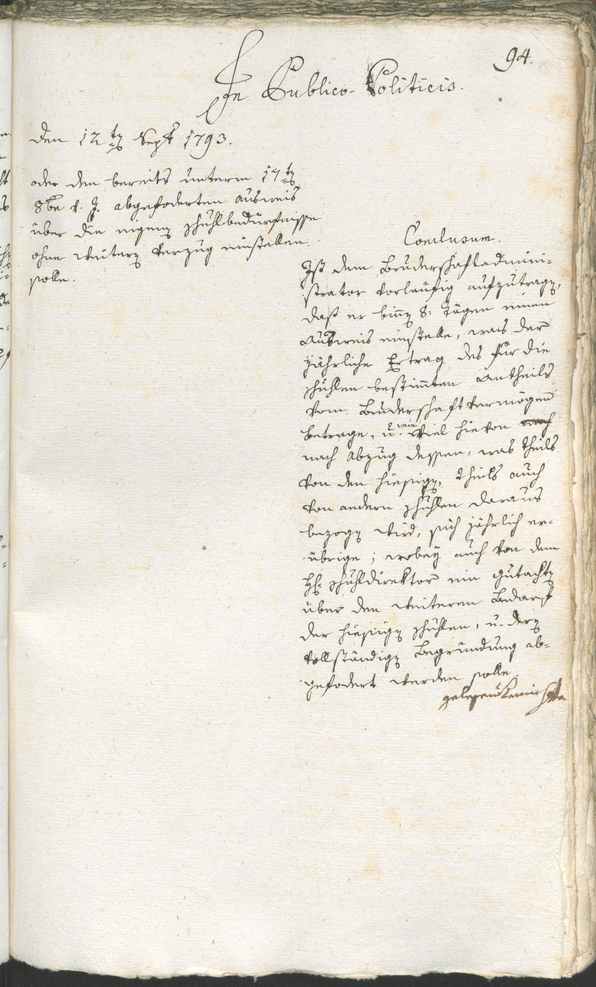 94.
In Publico-Politicis.
den 12ten Sept 1793.
oder den bereits unterm 17ten
8ber v. J. abgeforderten Ausweis
über die eigene Schulbedürfnisse
ohne weitern Verzug einstellen
solle.
Conclusum.
Ist dem Bruderschaftadmini-
strator vorläufig aufzutragen,
daß er binnen 8: Tägen einen
Ausweis einstelle, was der
jährliche Ertrag des für die
Schulen bestimten Antheils
vom Bruderschaftvermögen
betrage, u. wie viel hievon
nach Abzug dessen, was theils
von den hiesigen, theils auch
von andern Schulen daraus
bezogen wird, sich jährlich er-
übrige; wobey auch von dem
H: Schuldirektor ein Gutachten
über den weiteren Bedarf
der hiesigen Schulen, u. deren
vollständigen Begründung ab-
gefodert werden solle.